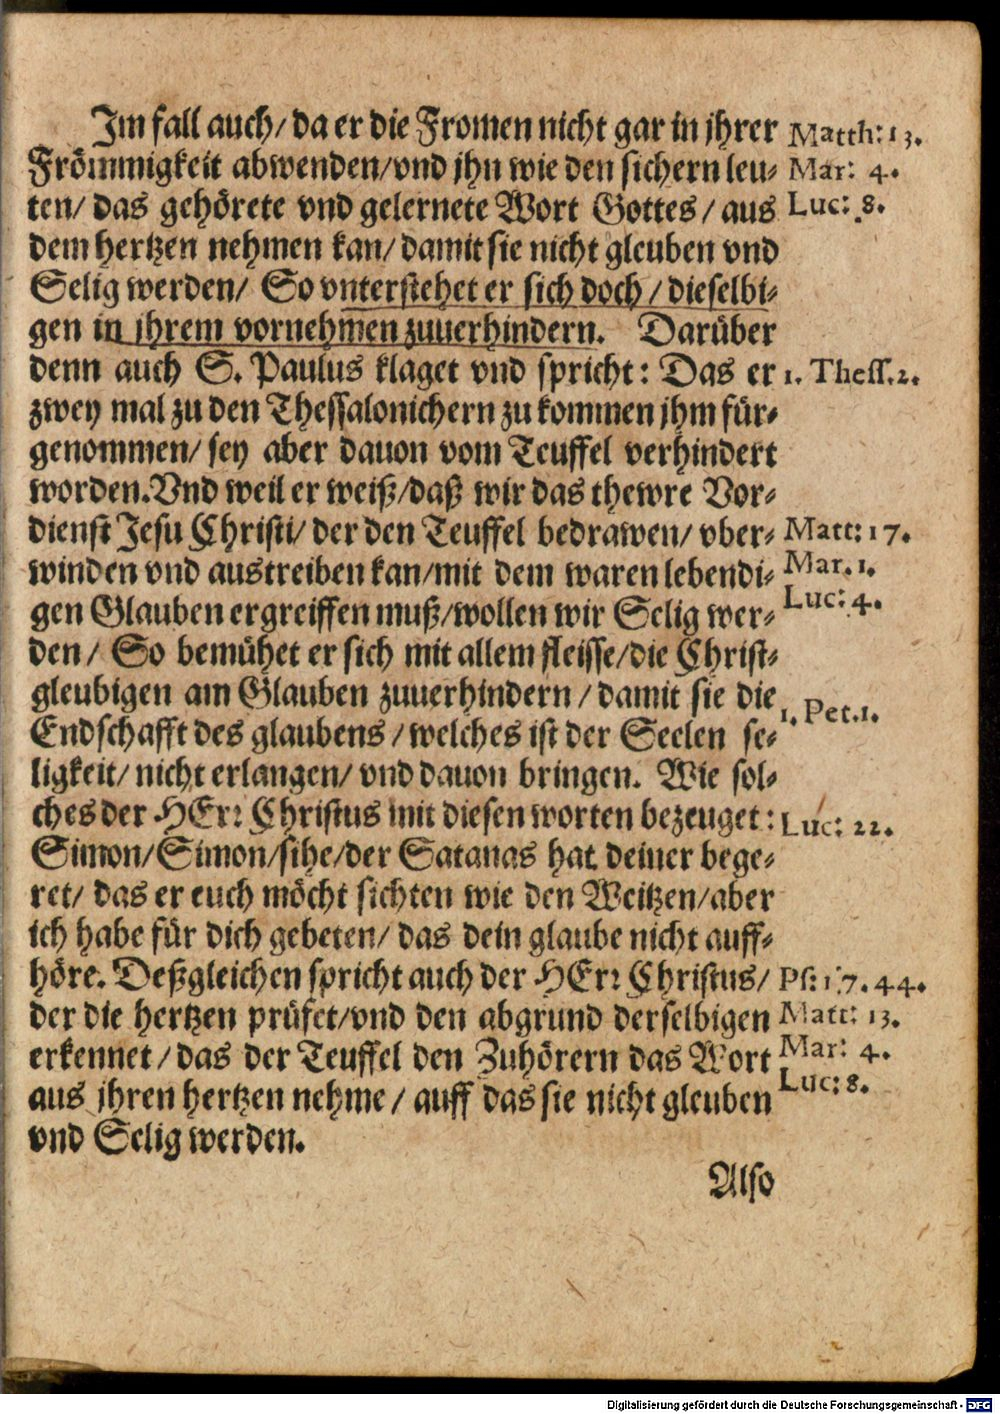 Im fall auch/ da er die Fromen nicht gar in jhrer
Matth: 13.
Frömmigkeit abwenden/vnd jhn wie den sichern leu-
Mar: 4.
ten/ das gehörete vnd gelernete Wort Gottes/ aus
Luc: 8.
dem hertzen nehmen kan/ damit sie nicht gleuben vnd
Selig werden/ So vnterstehet er sich doch/ dieselbi-
gen in jhrem vornehmen zuuerhindern. Darüber
denn auch S. Paulus klaget vnd spricht: Das er
1. Thess. 2.
zwey mal zu den Thessalonichern zu kommen jhm für-
genommen/ sey aber dauon vom Teuffel verhindert
worden. Vnd weil er weiß/daß wir das thewre Vor-
dienst Jesu Christi/ der den Teuffel bedrawen/ vber-
Matt: 17.
winden vnd austreiben kan/mit dem waren lebendi-
Mar. 1.
gen Glauben ergreiffen muß/wollen wir Selig wer-
Luc: 4.
den/ So bemühet er sich mit allem fleisse/die Christ-
gleubigen am Glauben zuuerhindern/ damit sie die
1. Pet. 1.
Endschafft des glaubens/welches ist der Seelen se-
ligkeit/ nicht erlangen/ vnd dauon bringen. Wie sol-
ches der HErr Christus mit diesen worten bezeuget:
Luc: 22.
Simon/Simon/sihe/der Satanas hat deiner bege-
ret/ das er euch möcht sichten wie den Weitzen/aber
ich habe für dich gebeten/ das dein glaube nicht auff-
höre. Deßgleichen spricht auch der HErr Christus/
Ps: 17. 44.
der die hertzen prüfet/vnd den abgrund derselbigen
Matt: 13.
erkennet/das der Teuffel den Zuhörern das Wort
Mar: 4.
aus jhren hertzen nehme/ auff das sie nicht gleuben
Luc: 8.
vnd Selig werden.
Also
Digitalisierung gefördert durch die Deutsche Forschungsgemeinschaft - DFG